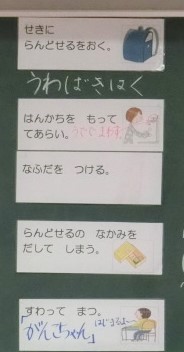 せきに
らんどせるをおく。
うわばきはく
はんかちを もって
てあらい。
なふだを つける。
らんどせるの なかみを
だして しまう。
すわって まつ。
「がんこちゃん」はじまるよ～